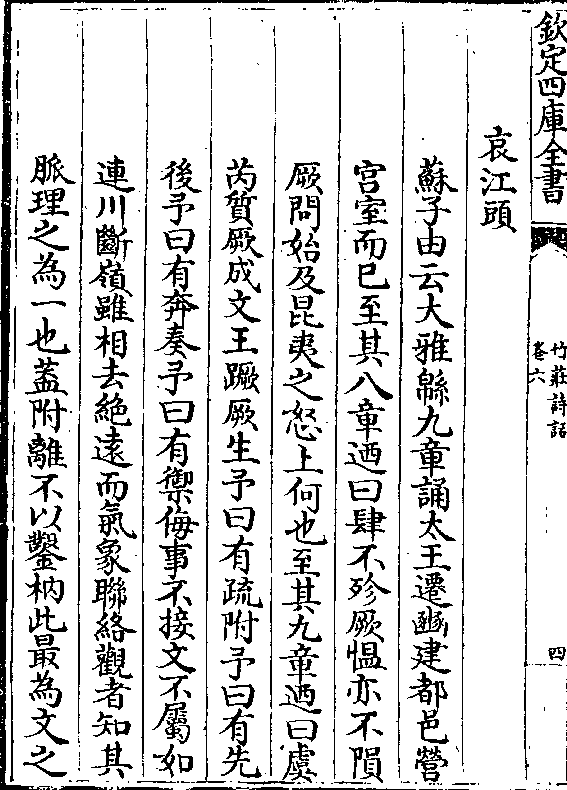 欽定四庫全書
竹莊詩話
卷六
四
哀江頭
蘇子由云大雅緜九章誦太王遷豳建都邑營
宫室而已至其八章迺曰肆不殄厥愠亦不隕
厥問始及昆夷之怒上何也至其九章迺曰虞
芮質厥成文王蹶厥生予曰有疏附予曰有先
後予曰有奔奏予曰有禦侮事不接文不屬如
連川斷嶺雖相去絶遠而氣象聯絡觀者知其
脈理之為一也蓋附離不以鑿枘此最為文之